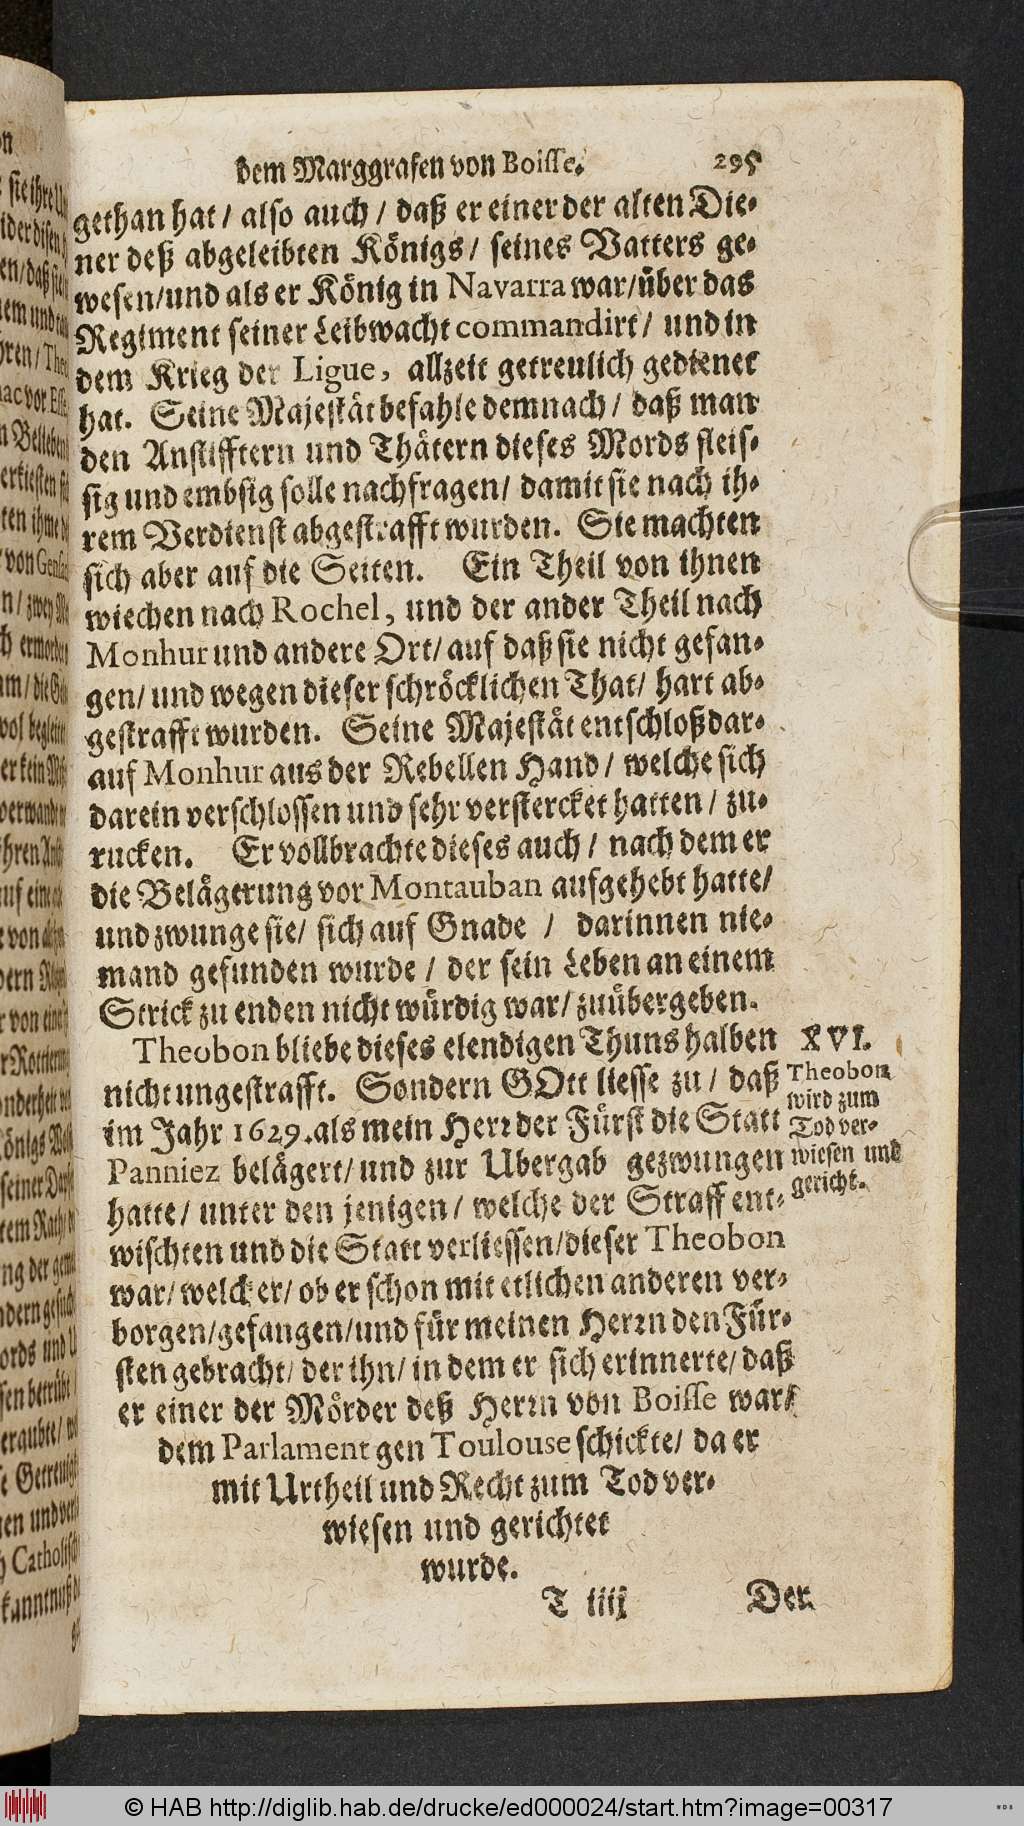 dem Marggrafen von Boisse. 295
gethan hat / also auch / daß er einer der alten Die-
ner deß abgeleibten Königs / seines Vatters ge-
wesen / und als er König in Navarra war / über das
Regiment seiner Leibwacht commandirt / und in
dem Krieg der Ligue, allzeit getreulich gedienet
hat. Seine Majestät befahle demnach / daß man
den Anstifftern und Thätern dieses Mords fleis-
sig und embsig solle nachfragen / damit sie nach ih-
rem Verdienst abgestrafft wurden. Sie machten
sich aber auf die Seiten. Ein Theil von ihnen
wiechen nach Rochel, und der ander Theil nach
Monhur und andere Ort / auf daß sie nicht gefan-
gen / und wegen dieser schröcklichen That / hart ab-
gestrafft wurden. Seine Majestät entschloß dar-
auf Monhur aus der Rebellen Hand / welche sich
darein verschlossen und sehr verstercket hatten / zu-
rucken. Er vollbrachte dieses auch / nach dem er
die Belägerung vor Montauban aufgehebt hatte /
und zwunge sie / sich auf Gnade / darinnen nie-
mand gefunden wurde / der sein Leben an einem
Strick zu enden nicht würdig war / zuübergeben.
Theobon bliebe dieses elendigen Thuns halben
nicht ungestrafft. Sondern GOtt liesse zu / daß
im Jahr 1629. als mein Herr der Fürst die Statt
Panniez belägert / und zur Ubergab gezwungen
hatte / unter den jenigen / welche der Straff ent-
wischten und die Statt verliessen / dieser Theobon
war / welcher / ob er schon mit etlichen anderen ver-
borgen / gefangen / und für meinen Herrn den Für-
sten gebracht / der ihn / in dem er sich erinnerte / daß
er einer der Mörder deß Herrn von Boisse war /
dem Parlament gen Toulouse schickte / da er
mit Urtheil und Recht zum Tod ver-
wiesen und gerichtet
wurde.
XVI.
Theobon
wird zum
Tod ver-
wiesen und
gericht.
T iiij Der
© HAB http://diglib.hab.de/drucke/ed000024/start.htm?image=00317